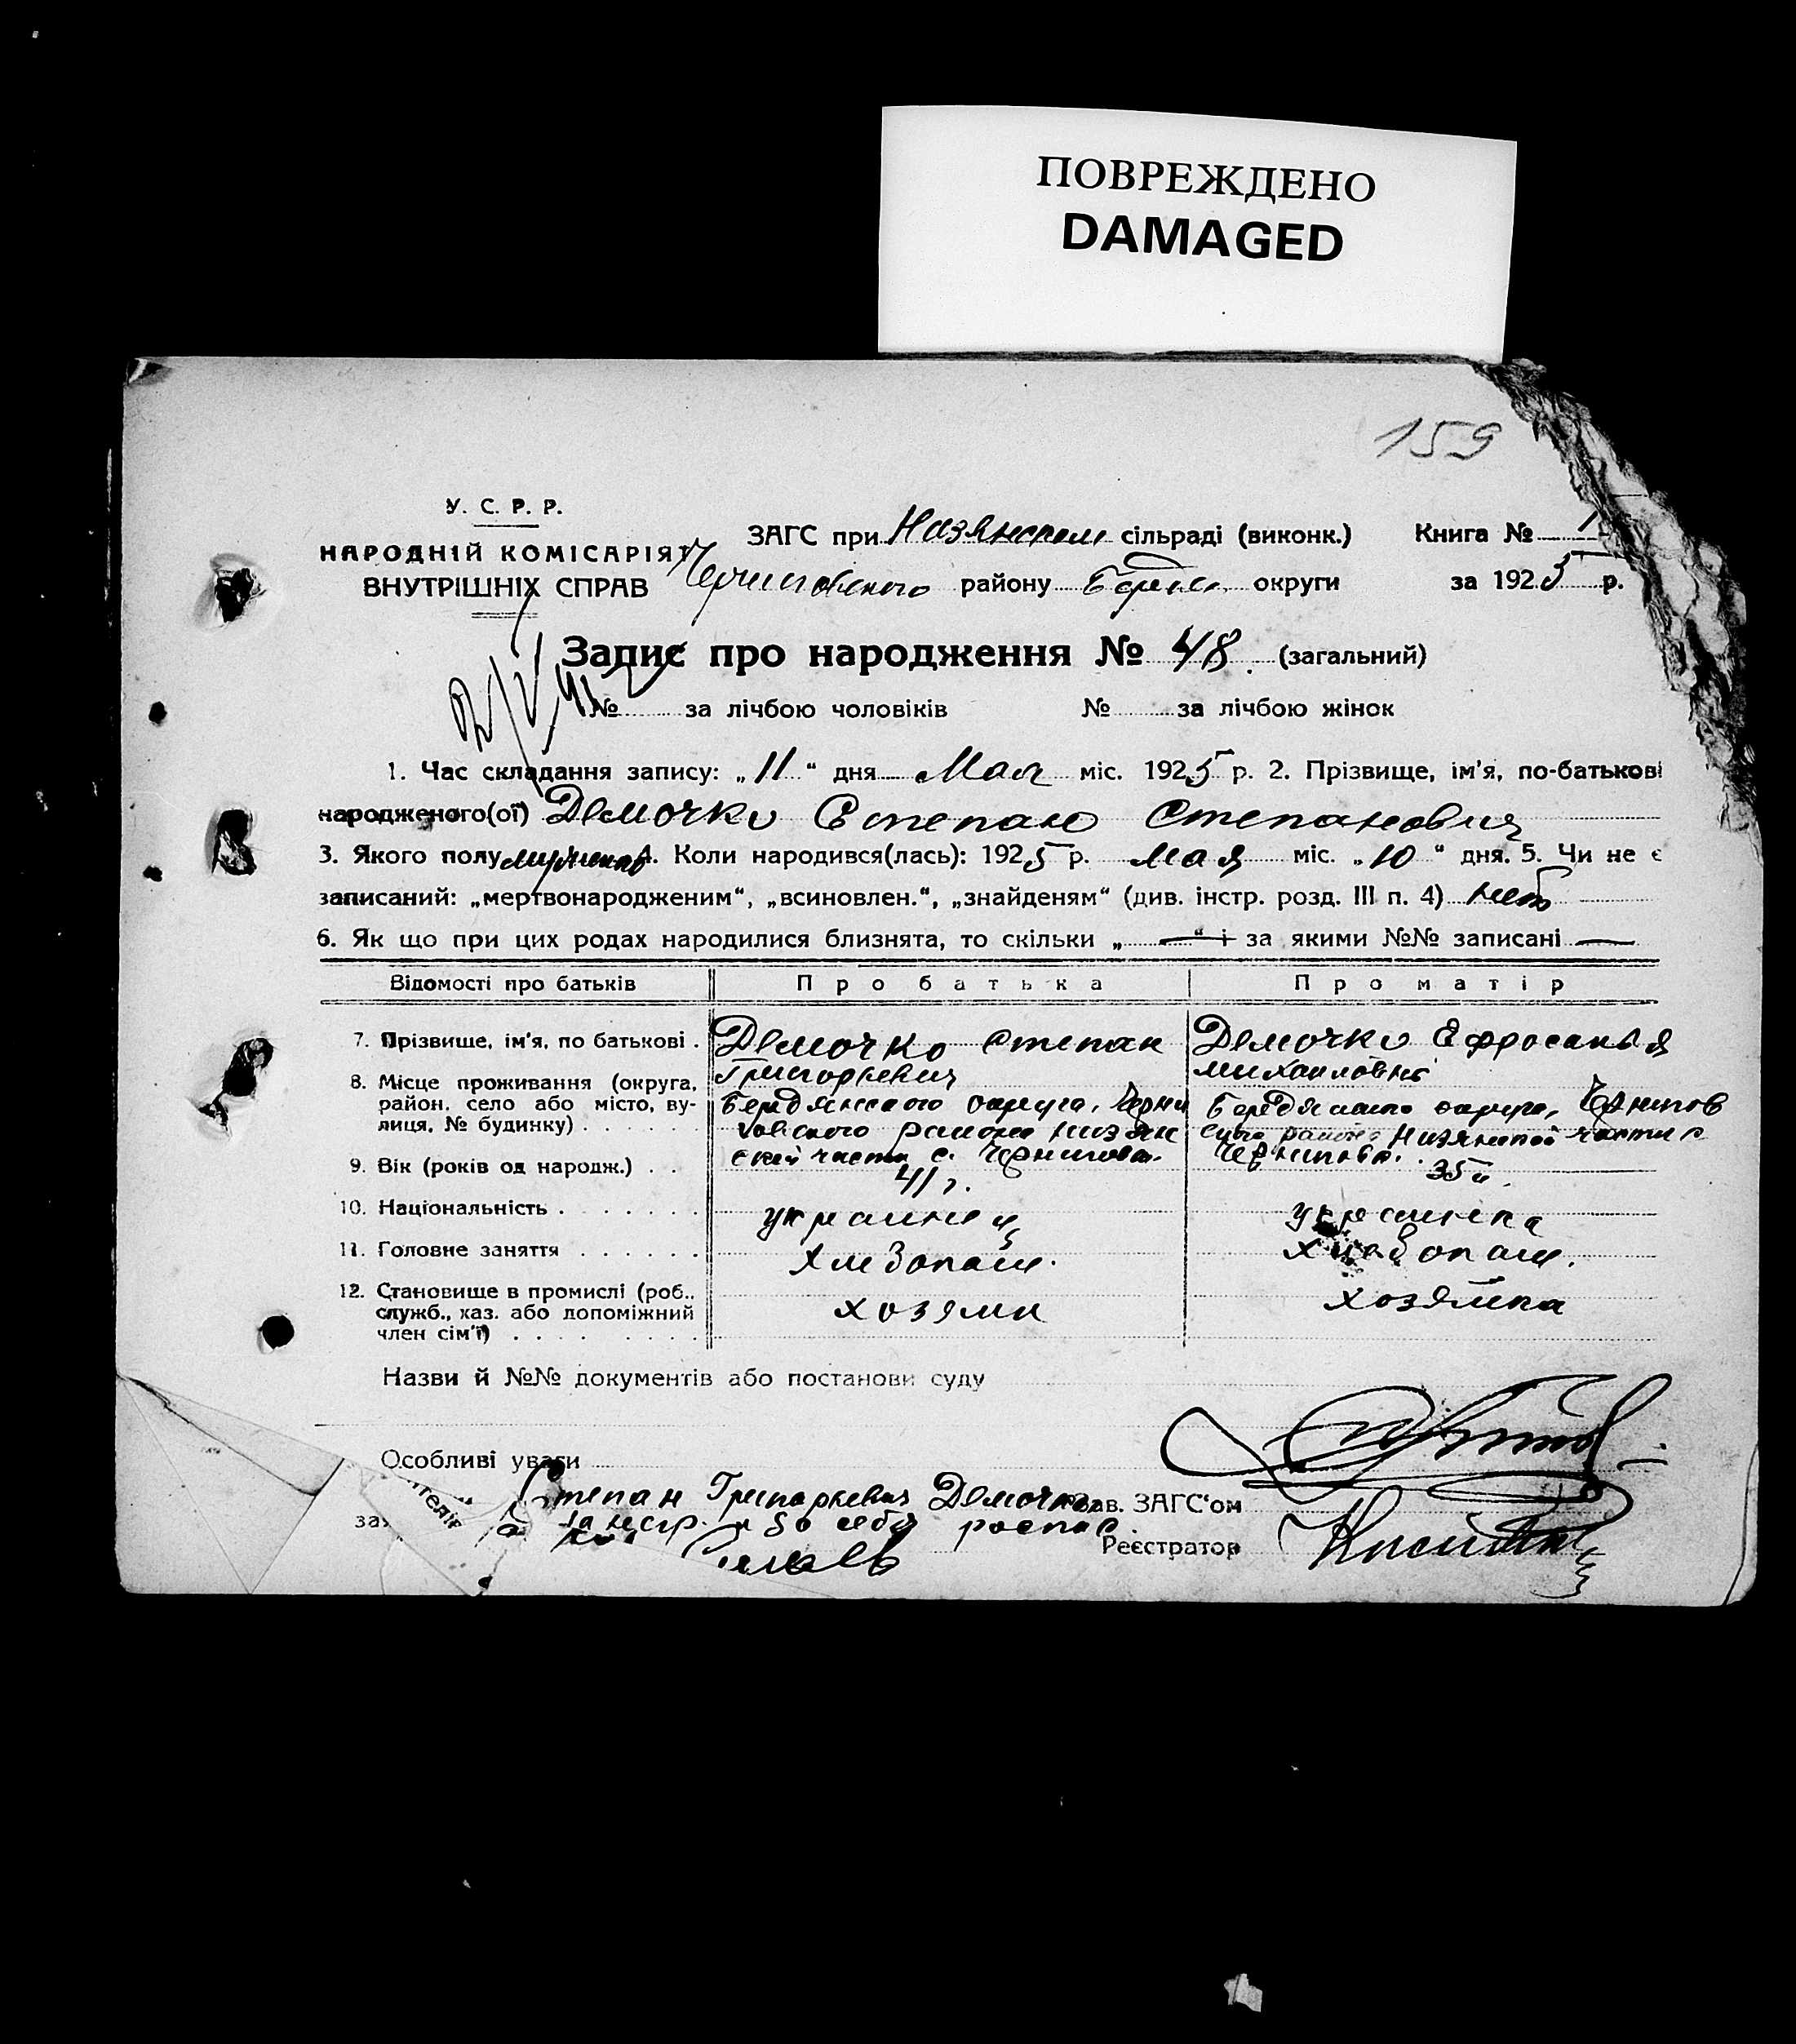 ПОВРЕЖДЕНО
DAMAGED
159
У. С. Р. Р.
НАРОДНІЙ КОМІСАРІЯТ
ВНУТРІШНІХ СПРАВ
ЗАГС при Низянском сільраді (виконк.) Книга № 1
Черниговского району Бердян. округи за 1925 р.
Запис про народження № 48. (загальний)
№ за лічбою чоловіків № за лічбою жінок
1. Час складання запису: „11“ дня Мая міс. 1925 р. 2. Прізвище, ім'я, по-батькові
народженого(ої) Демочко Степан Степанович
3. Якого полу 4. Коли народився(лась): 1925 р. мая міс. „10“ дня. 5. Чи не є
записаний: „мертвонародженим“, „всиновлен.“, „знайденям“ (див. інстр. розд. III п. 4) нет
6. Як що при цих родах народилися близнята, то скільки „—“ і за якими №№ записані —
Відомості про батьків Про батька Про матір
7. Прізвище, ім'я, по батькові . Демочко Степан Григорьевич Демочко Ефросинья Михайловна
8. Місце проживання (округа, район, село або місто, вулиця, № будинку) Бердянского округа, Черниговского района Низянской части с. Чернигова. Бердянского округа, Черниговского района Низянской части с. Чернигова.
9. Вік (років од народж.) . . 41 г. 35 л.
10. Національність украинец украинка
11. Головне заняття хлебопаш. хлебопаш.
12. Становище в промислі (роб., служб., хаз. або допоміжний член сім'ї) хозяин хозяйка
Назви й №№ документів або постанови суду
Особливі уваги
Степан Григорьевич Демочко
Зав. ЗАГС'ом
Реєстратор